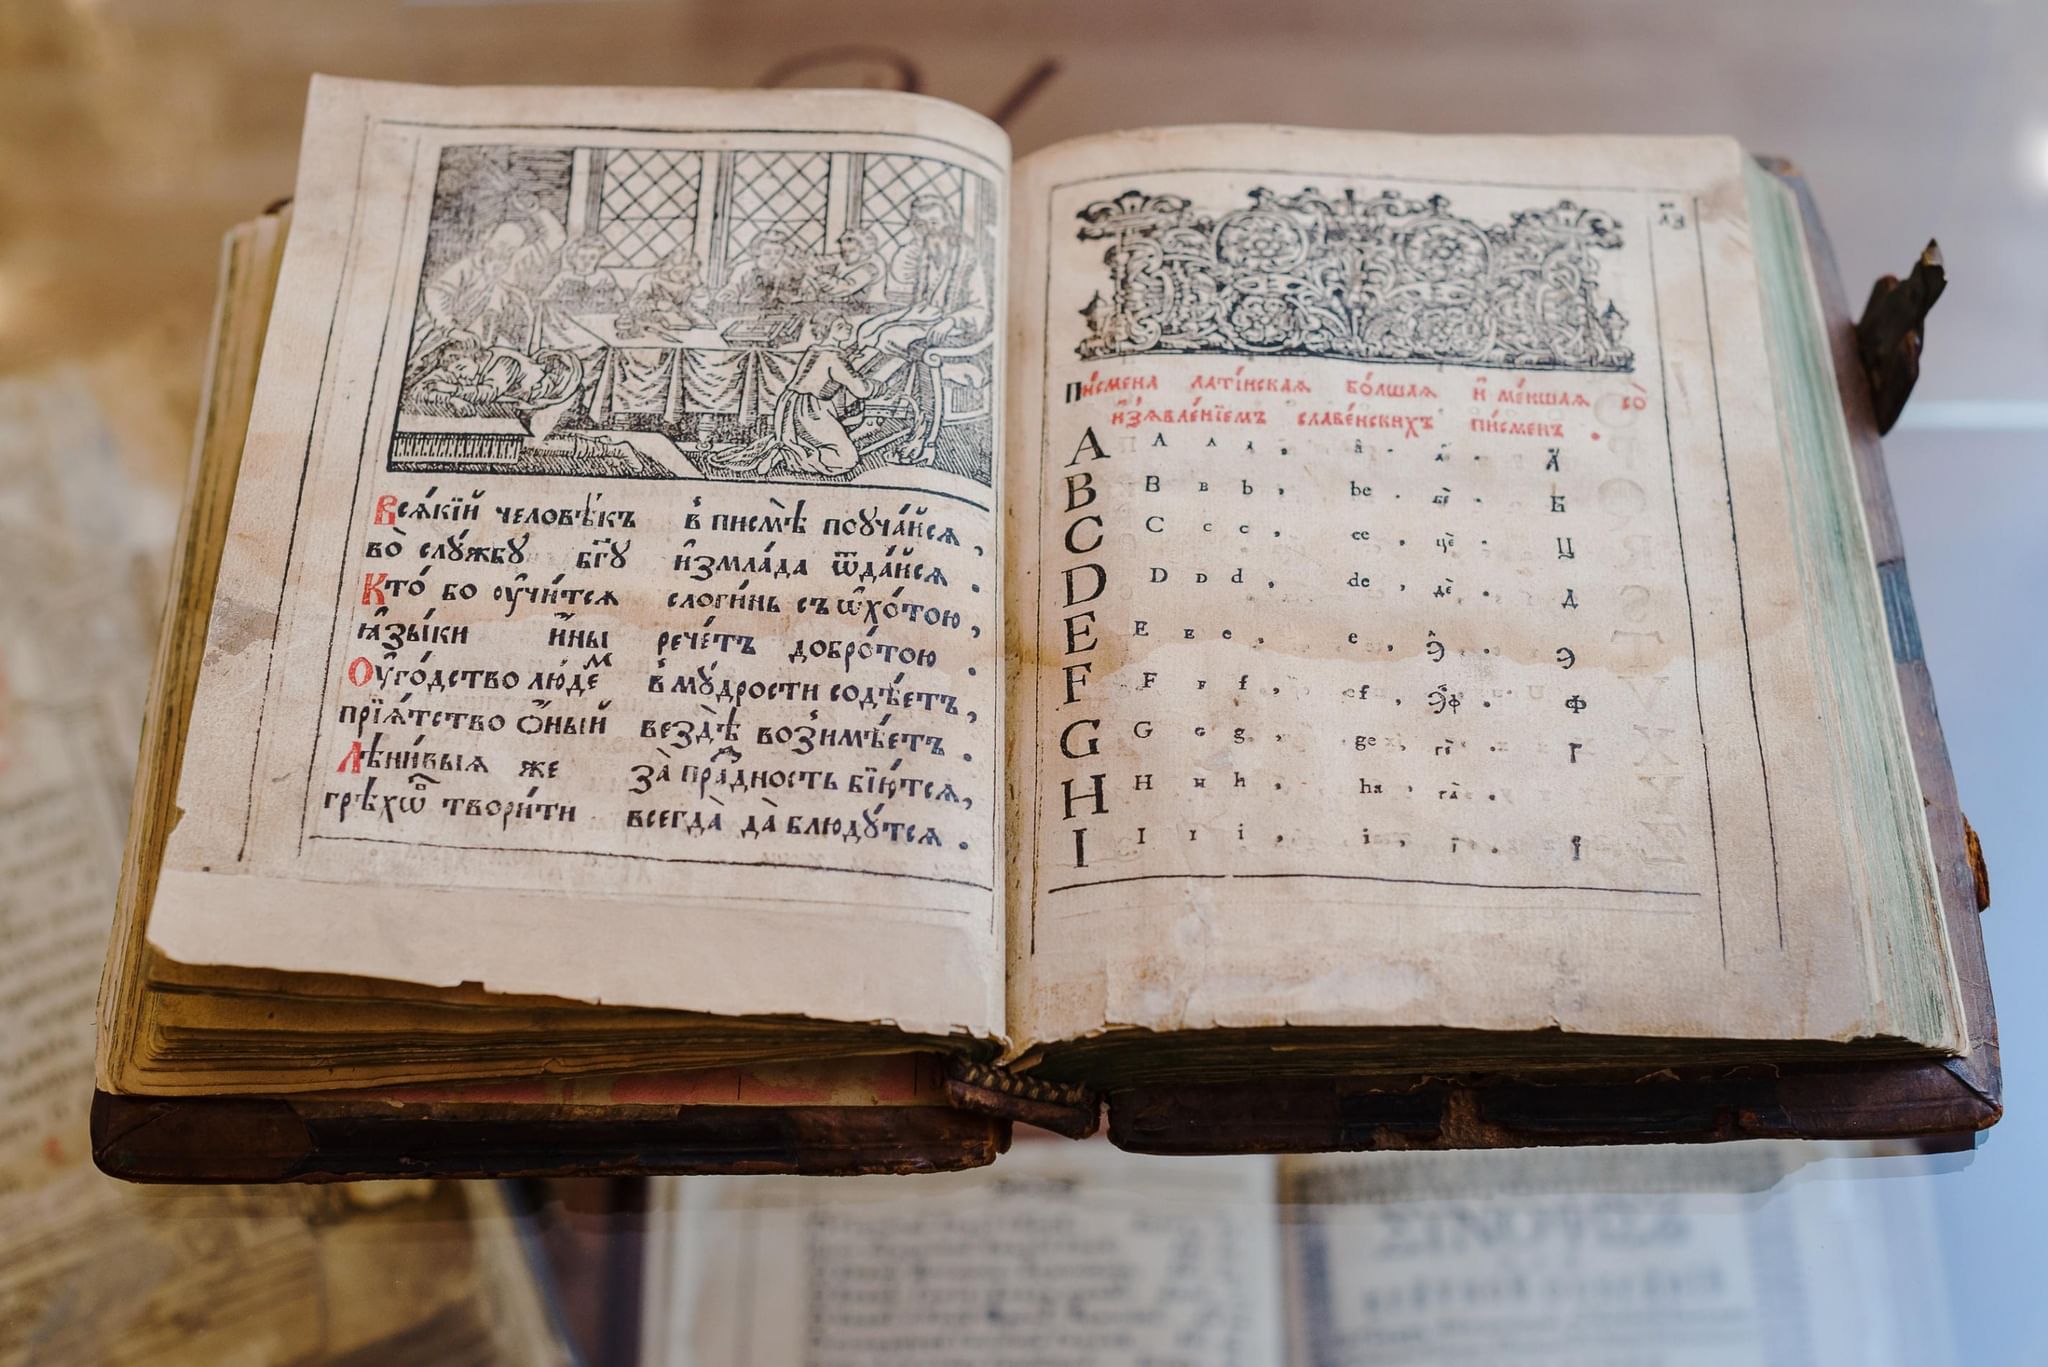 Всѧ́кїй человѣ́къ в̾ писмѣ̀ поꙋча́йсѧ,
во̀ слꙋ́жбꙋ бг҃ꙋ и҆змла́да ѿда́йсѧ.
Кто́ бо оу҆чи́тсѧ слоги́нь съ ѡ҆хо́тою,
ꙗ҆зы́ки и҆́ны рече́тъ добро́тою.
Оу҆го́дство лю́деⷨ в̾ мꙋ́дрости содѣ́етъ,
прїѧ́тство ѻ҆́ный вездѣ̀ воз̾имѣ́етъ.
Лѣни́выѧ же за̀ пра́ⷥдность бїю́тсѧ,
грѣхѡ́въ твори́ти всегда̀ да̀ блюдꙋ́тсѧ.
л҃з
Пи́смена лати́нскаѧ бо́лшаѧ и҆ ме́ншаѧ со
и҆з̾ѧвле́нїемъ славе́нскихъ пи́сменъ.
A A ᴀ , а҆̀ . А҆
B B ʙ b , be . бѐ . Б
C C c c , ce , цѐ . Ц
D D ᴅ d , de , дѐ . Д
E E ᴇ e , e , э҆̀ . Э
F F ꜰ f , ef , э҆́ф . Ф
G G ɢ g , ge , гѐ . Г
H H ʜ h , ha , га̀ .
I I ɪ i , i , ї . Ї